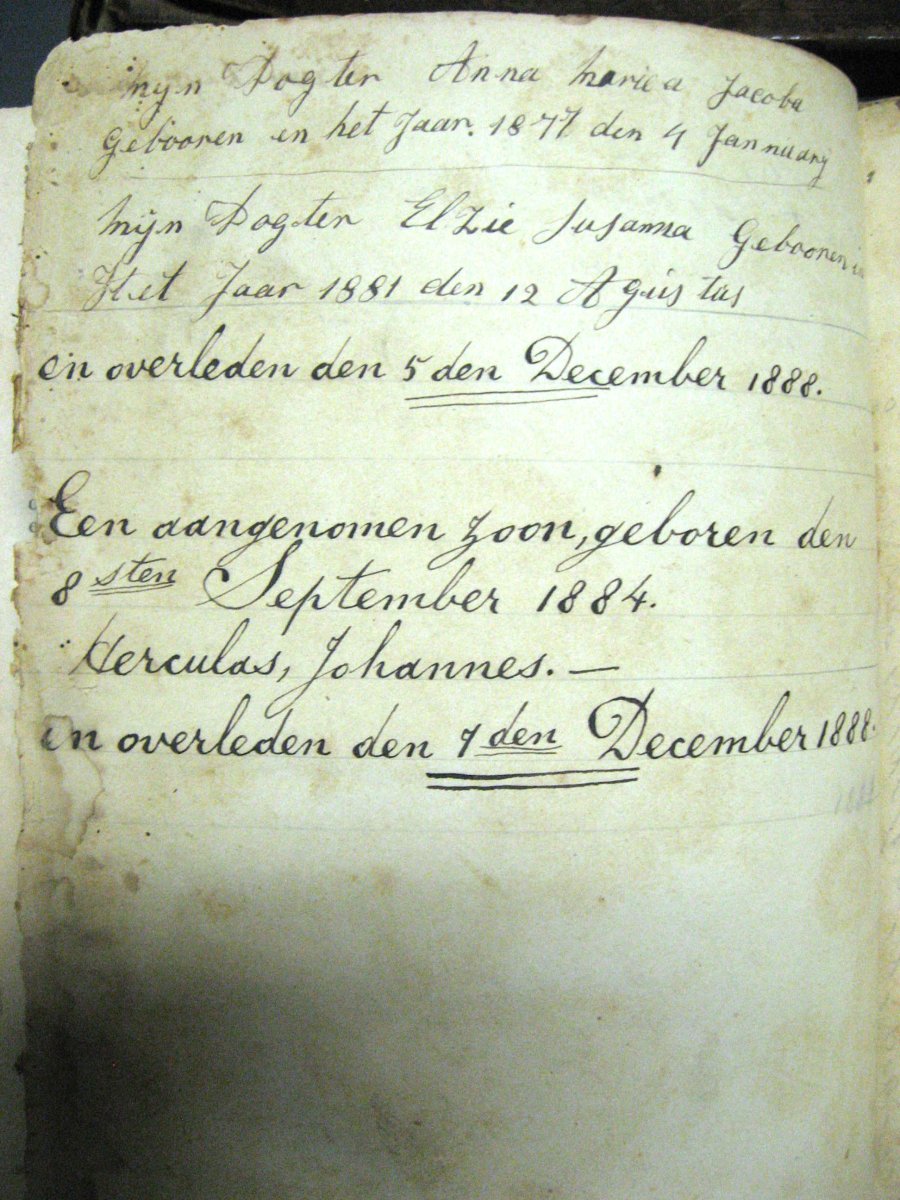 mijn Dogter Anna Maria Jacoba
Gebooren en het Jaar. 1877 den 4 Jannuary
Mijn Dogter Elzie Susanna Gebooren in
Het Jaar 1881 den 12 Agustus
en overleden den 5 den December 1888.
Een aangenomen zoon, geboren den
8 sten September 1884.
Herculas, Johannes. —
en overleden den 7 den December 1888.